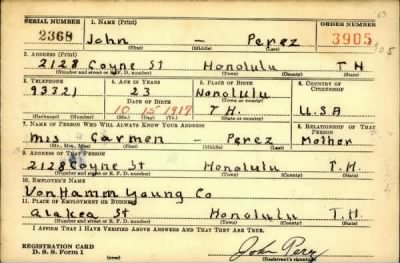 SERIAL NUMBER 1. NAME (Print) ORDER NUMBER
2368 John - Perez 3905
(First) (Middle) (Last)
2. ADDRESS (Print)
2128 Coyne St Honolulu T H
(Number and street or R. F. D. number) (Town) (County) (State)
3. TELEPHONE 4. AGE IN YEARS 5. PLACE OF BIRTH 6. COUNTRY OF CITIZENSHIP
93321 23 Honolulu
DATE OF BIRTH (Town or county)
10 15 1917 T.H. U.S.A
(Exchange) (Number) (Mo.) (Day) (Yr.) (State or country)
7. NAME OF PERSON WHO WILL ALWAYS KNOW YOUR ADDRESS 8. RELATIONSHIP OF THAT PERSON
Mrs Carmen - Perez Mother
(Mr., Mrs., Miss) (First) (Middle) (Last)
9. ADDRESS OF THAT PERSON
2128 Coyne St Honolulu T.H.
(Number and street or R. F. D. number) (Town) (County) (State)
10. EMPLOYER'S NAME
Von Hamm Young Co
11. PLACE OF EMPLOYMENT OR BUSINESS
Alakea St Honolulu T.H.
(Number and street or R. F. D. number) (Town) (County) (State)
I AFFIRM THAT I HAVE VERIFIED ABOVE ANSWERS AND THAT THEY ARE TRUE.
REGISTRATION CARD
D. S. S. Form 1 John Perez
(Registrant's signature)